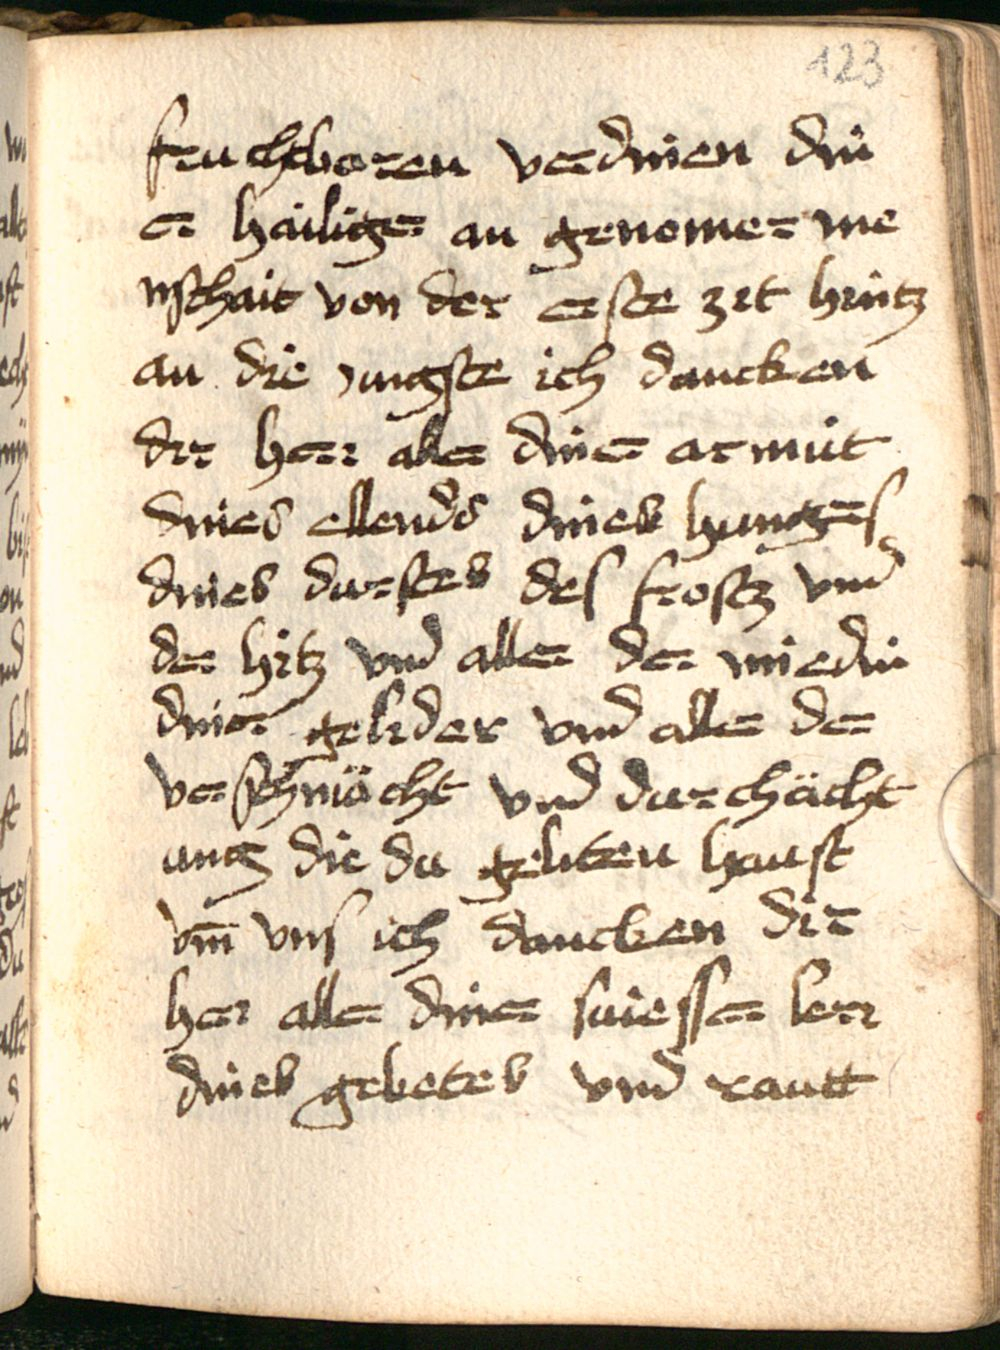 123
fruchboren verdinen din
er hailiger an genomer me
nschait von der erste zit hriutz
an die jungste ich dancken
dir herr aller diner armüt
dines ellends dines hungers
dines durstes des frostz vnd
der hitz vnd aller der miedin
diner gelider vnd aller der
verschmächt vnd durchächt
ung die du geliten haust
vm̄ vns ich dancken dir
her aller diner süessen lerr
dines gebetes vnd rautt